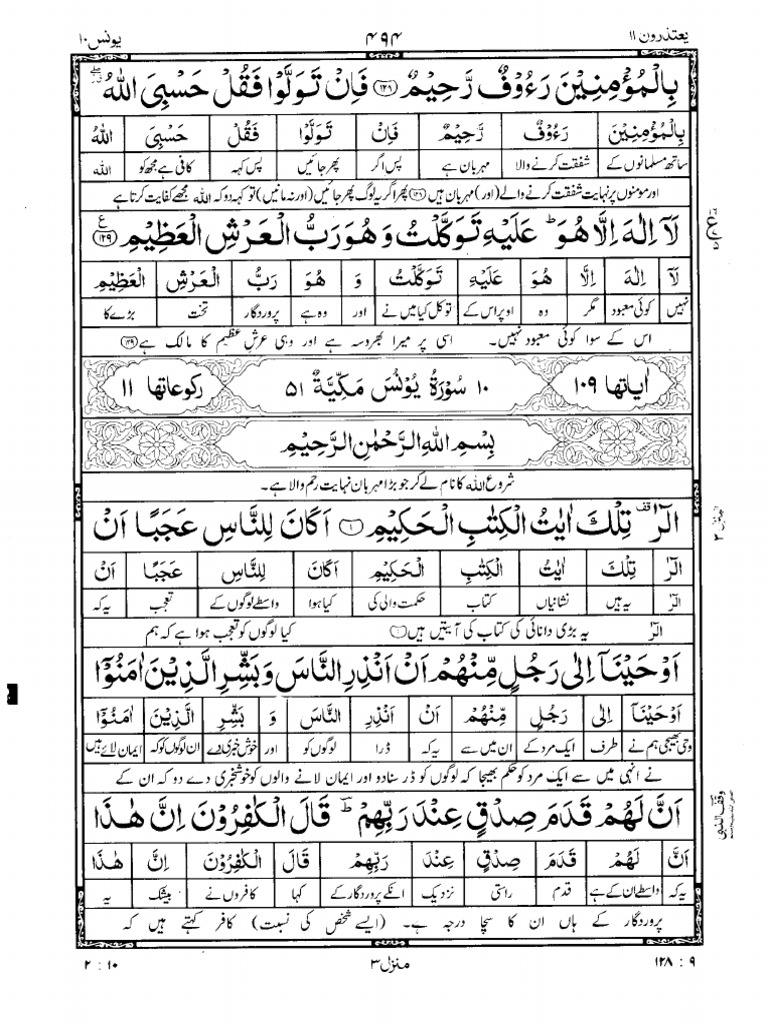 یعتذرون ۱۱ ۴۹۴ یونس ۱۰
بِالۡمُؤۡمِنِیۡنَ رَءُوۡفٌ رَّحِیۡمٌ ﴿۱۲۸﴾ فَاِنۡ تَوَلَّوۡا فَقُلۡ حَسۡبِیَ اللّٰهُ
بِالۡمُؤۡمِنِیۡنَ رَءُوۡفٌ رَّحِیۡمٌ فَاِنۡ تَوَلَّوۡا فَقُلۡ حَسۡبِیَ اللّٰهُ
ساتھ مسلمانوں کے شفقت کرنے والا مہربان ہے پس اگر پھر جائیں پس کہہ کافی ہے مجھ کو اللہ
اور مومنوں پر نہایت شفقت کرنے والے (اور) مہربان ہیں ﴿۱۲۸﴾ پھر اگر یہ لوگ پھر جائیں (اور نہ مانیں) تو کہہ دو کہ اللہ مجھے کفایت کرتا ہے
لَاۤ اِلٰهَ اِلَّا هُوَ ؕ عَلَیۡهِ تَوَکَّلۡتُ وَهُوَ رَبُّ الۡعَرۡشِ الۡعَظِیۡمِ ﴿۱۲۹﴾ ع
لَاۤ اِلٰهَ اِلَّا هُوَ عَلَیۡهِ تَوَکَّلۡتُ وَ هُوَ رَبُّ الۡعَرۡشِ الۡعَظِیۡمِ
نہیں کوئی معبود مگر وہ اوپر اس کے توکل کیا میں نے اور وہ ہے پروردگار تخت بڑے کا
اس کے سوا کوئی معبود نہیں۔ اسی پر میرا بھروسہ ہے اور وہی عرش عظیم کا مالک ہے ﴿۱۲۹﴾
اٰیاتھا ۱۰۹ ۱۰ سُوۡرَةُ یُوۡنُسَ مَکِّیَّةٌ ۵۱ رکوعاتھا ۱۱
بِسۡمِ اللّٰهِ الرَّحۡمٰنِ الرَّحِیۡمِ
شروع اللہ کا نام لے کر جو بڑا مہربان نہایت رحم والا ہے۔
الٓرٰ ۟ تِلۡكَ اٰیٰتُ الۡكِتٰبِ الۡحَكِیۡمِ ﴿۱﴾ اَكَانَ لِلنَّاسِ عَجَبًا اَنۡ
الٓرٰ تِلۡكَ اٰیٰتُ الۡكِتٰبِ الۡحَكِیۡمِ اَكَانَ لِلنَّاسِ عَجَبًا اَنۡ
الٓرٰ یہ ہیں نشانیاں کتاب حکمت والی کی کیا ہوا واسطے لوگوں کے تعجب یہ کہ
الٓرٰ یہ بڑی دانائی کی کتاب کی آیتیں ہیں ﴿۱﴾ کیا لوگوں کو تعجب ہوا ہے کہ ہم
اَوۡحَیۡنَاۤ اِلٰی رَجُلٍ مِّنۡهُمۡ اَنۡ اَنۡذِرِ النَّاسَ وَبَشِّرِ الَّذِیۡنَ اٰمَنُوۡۤا
اَوۡحَیۡنَاۤ اِلٰی رَجُلٍ مِّنۡهُمۡ اَنۡ اَنۡذِرِ النَّاسَ وَ بَشِّرِ الَّذِیۡنَ اٰمَنُوۡۤا
وحی بھیجی ہم نے طرف ایک مرد کے ان میں سے یہ کہ ڈرا لوگوں کو اور خوش خبری دے ان لوگوں کو کہ ایمان لائے ہیں
نے انہی میں سے ایک مرد کو حکم بھیجا کہ لوگوں کو ڈر سنا دو اور ایمان لانے والوں کو خوشخبری دے دو کہ ان کے
اَنَّ لَهُمۡ قَدَمَ صِدۡقٍ عِنۡدَ رَبِّهِمۡ ؕ قَالَ الۡكٰفِرُوۡنَ اِنَّ هٰذَا
اَنَّ لَهُمۡ قَدَمَ صِدۡقٍ عِنۡدَ رَبِّهِمۡ قَالَ الۡكٰفِرُوۡنَ اِنَّ هٰذَا
یہ کہ واسطے ان کے ہے قدم راستی نزدیک انکے پروردگار کے کہا کافروں نے بیشک یہ
پروردگار کے ہاں ان کا سچا درجہ ہے۔ (ایسے شخص کی نسبت) کافر کہتے ہیں کہ
۹ : ۱۲۸ منزل ۳ ۱۰ : ۲